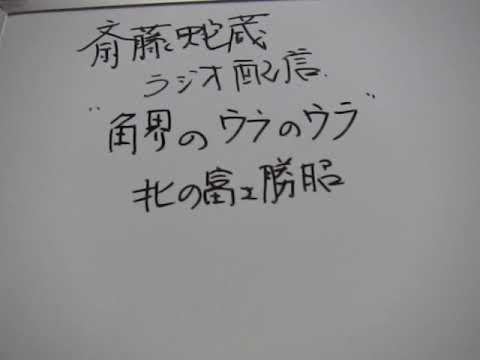 斎藤蛇蔵
ラジオ配信
"角界のウラのウラ"
北の富士勝昭